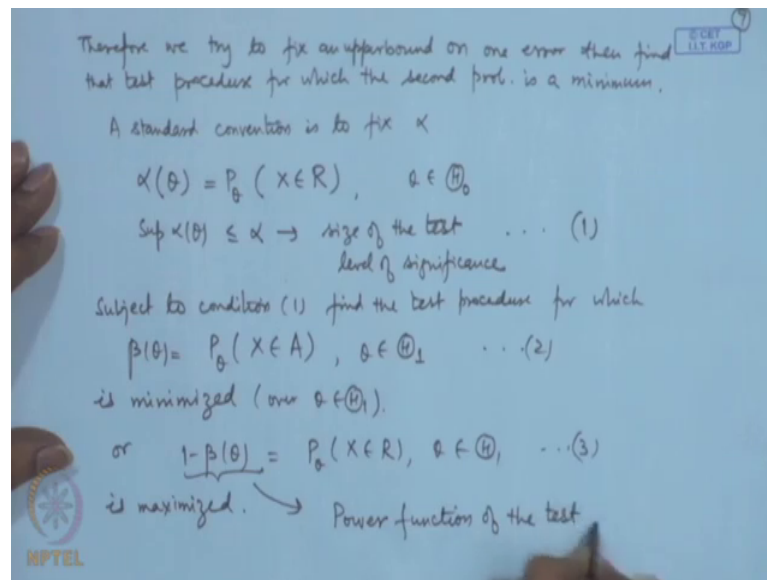 9
© CET
I.I.T. KGP
Therefore we try to fix an upperbound on one error then find
that test procedure for which the second prob. is a minimum.
A standard convention is to fix α
α(θ) = P_θ ( X ∈ R ) , θ ∈ Ⓗ₀
Sup α(θ) ≤ α → size of the test . . . (1)
level of significance
Subject to condition (1) find the test procedure for which
β(θ) = P_θ ( X ∈ A ) , θ ∈ Ⓗ₁ . . . (2)
is minimized ( over θ ∈ Ⓗ₁ ).
or 1-β(θ) = P_θ ( X ∈ R ), θ ∈ Ⓗ₁ . . . (3)
is maximized. → Power function of the test
NPTEL